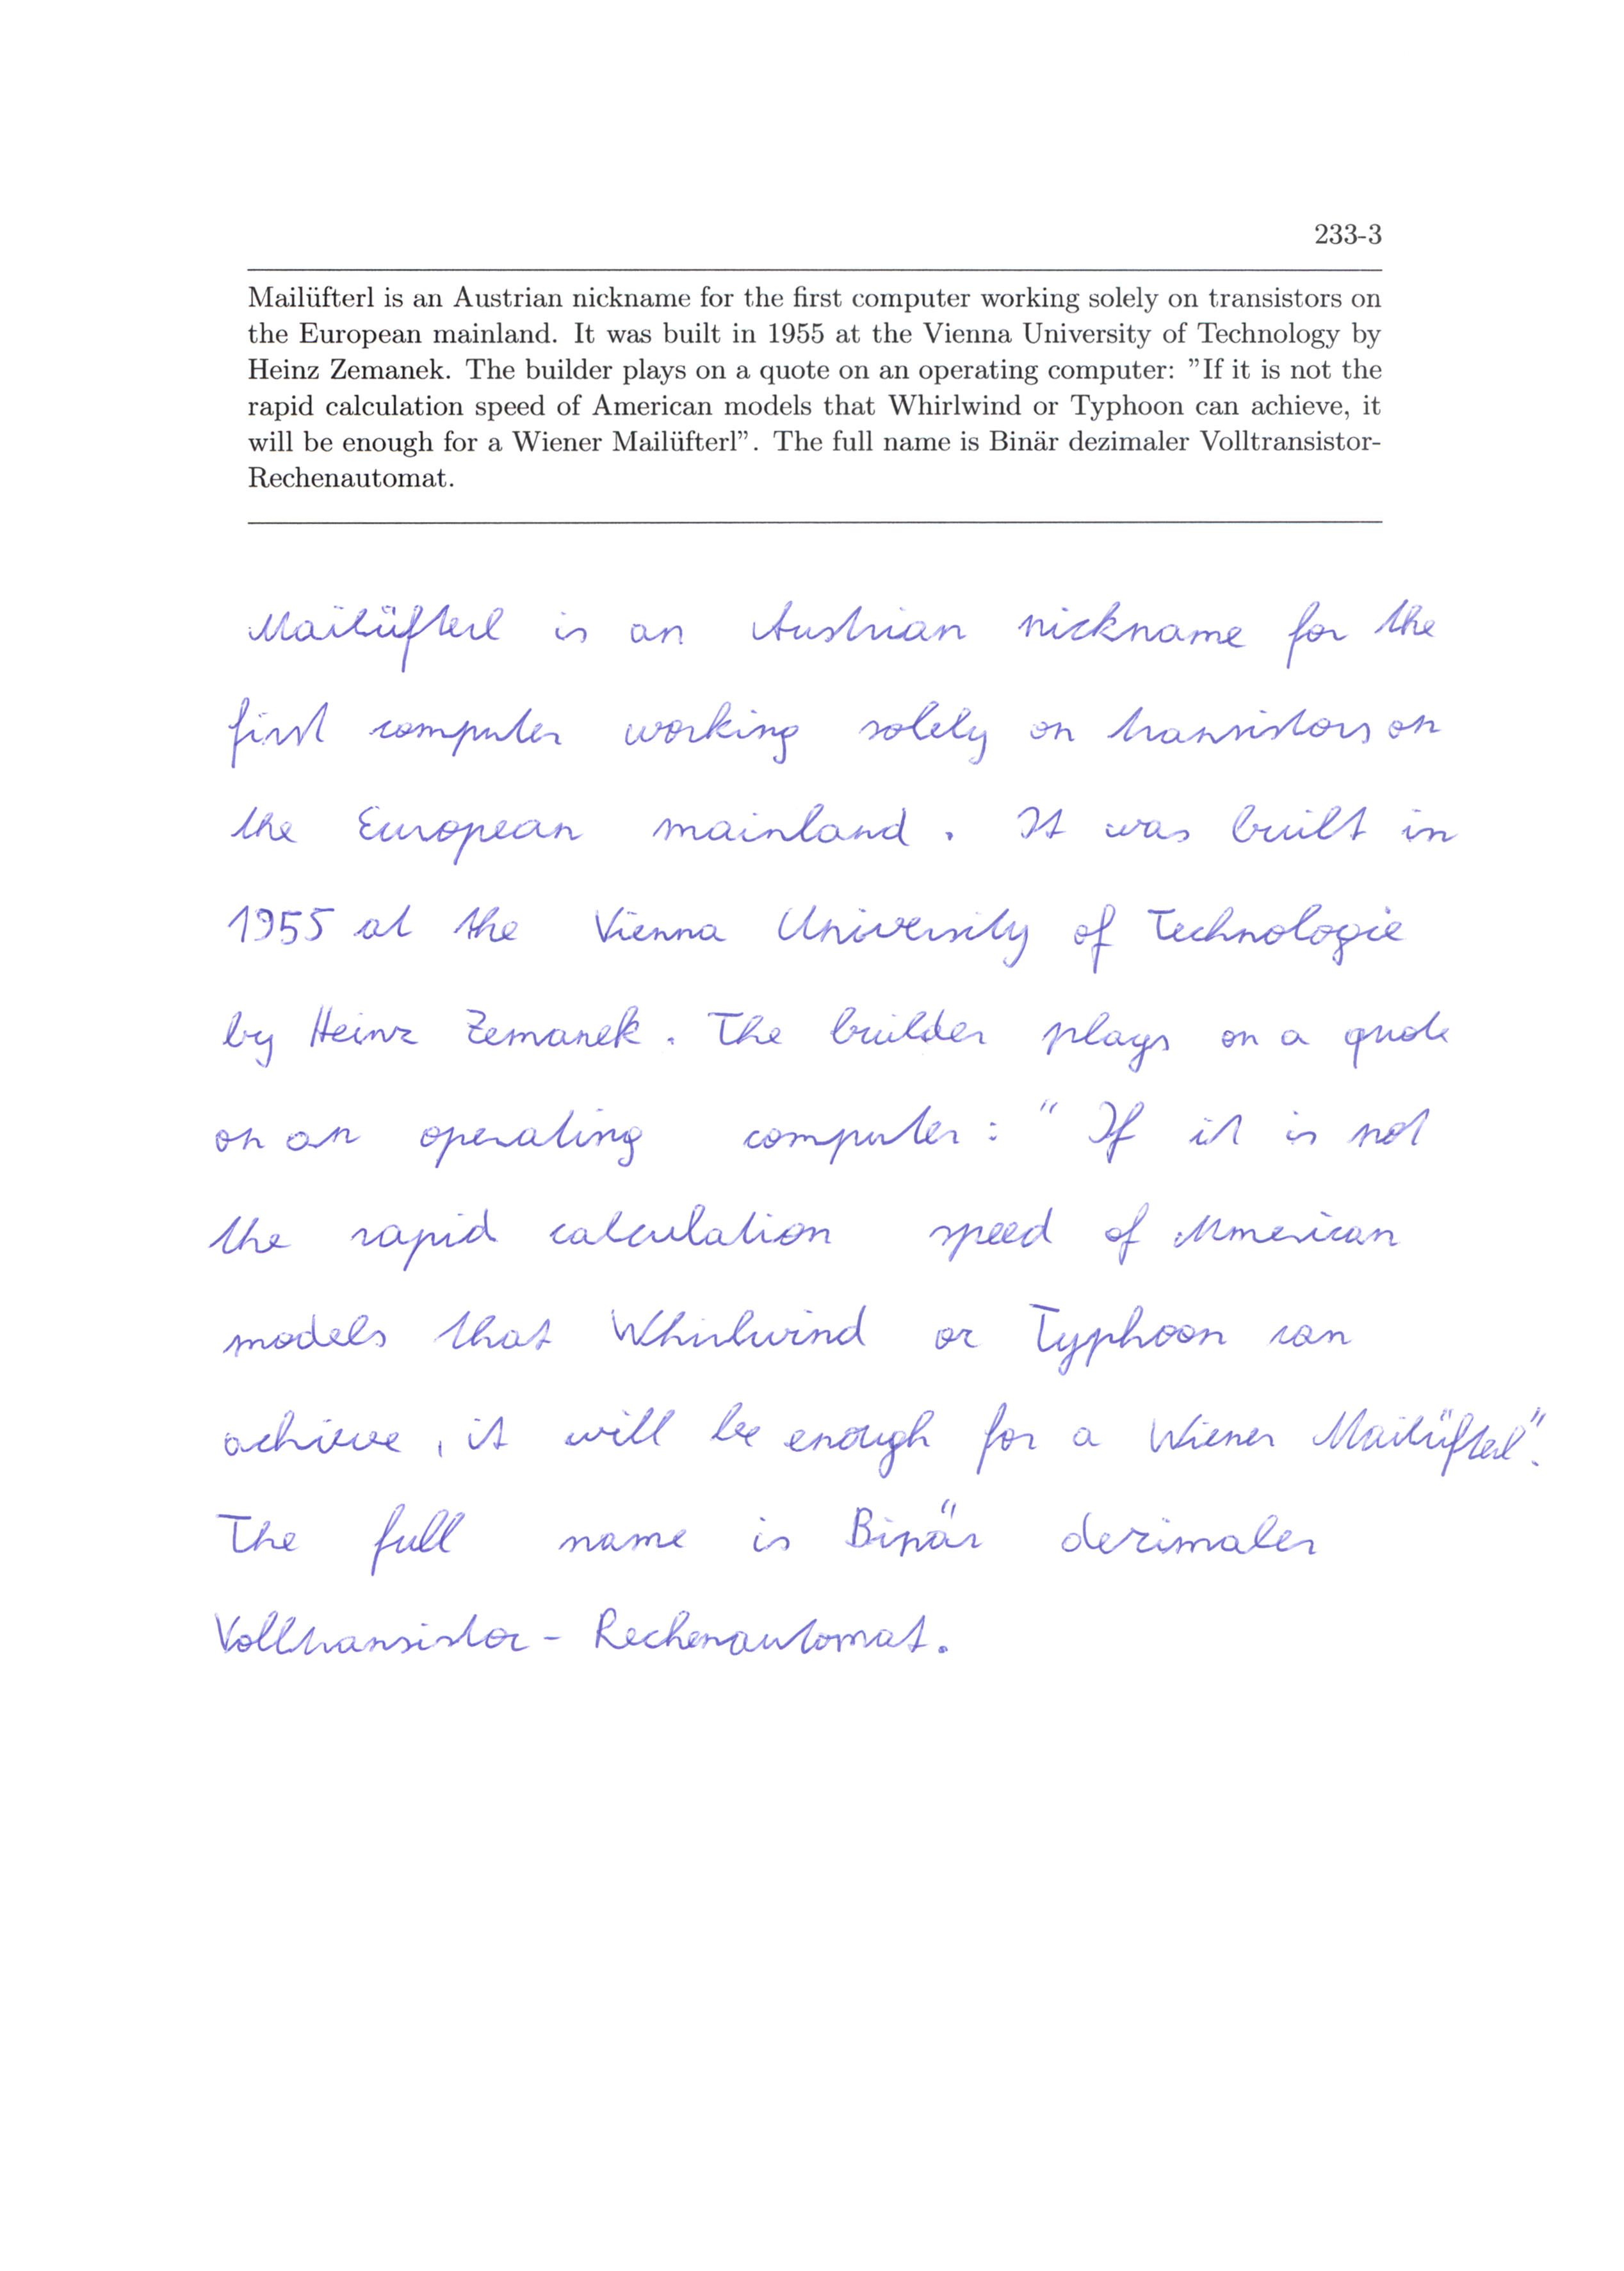 233-3
Mailüfterl is an Austrian nickname for the first computer working solely on transistors on
the European mainland. It was built in 1955 at the Vienna University of Technology by
Heinz Zemanek. The builder plays on a quote on an operating computer: ”If it is not the
rapid calculation speed of American models that Whirlwind or Typhoon can achieve, it
will be enough for a Wiener Mailüfterl”. The full name is Binär dezimaler Volltransistor-
Rechenautomat.
Mailüfterl is an Austrian nickname for the
first computer working solely on transistors on
the European mainland. It was built in
1955 at the Vienna University of Technologie
by Heinz Zemanek. The builder plays on a quote
on an operating computer: "If it is not
the rapid calculation speed of American
models that Whirlwind or Typhoon can
achieve, it will be enough for a Wiener Mailüfterl".
The full name is Binär dezimaler
Volltransistor-Rechenautomat.